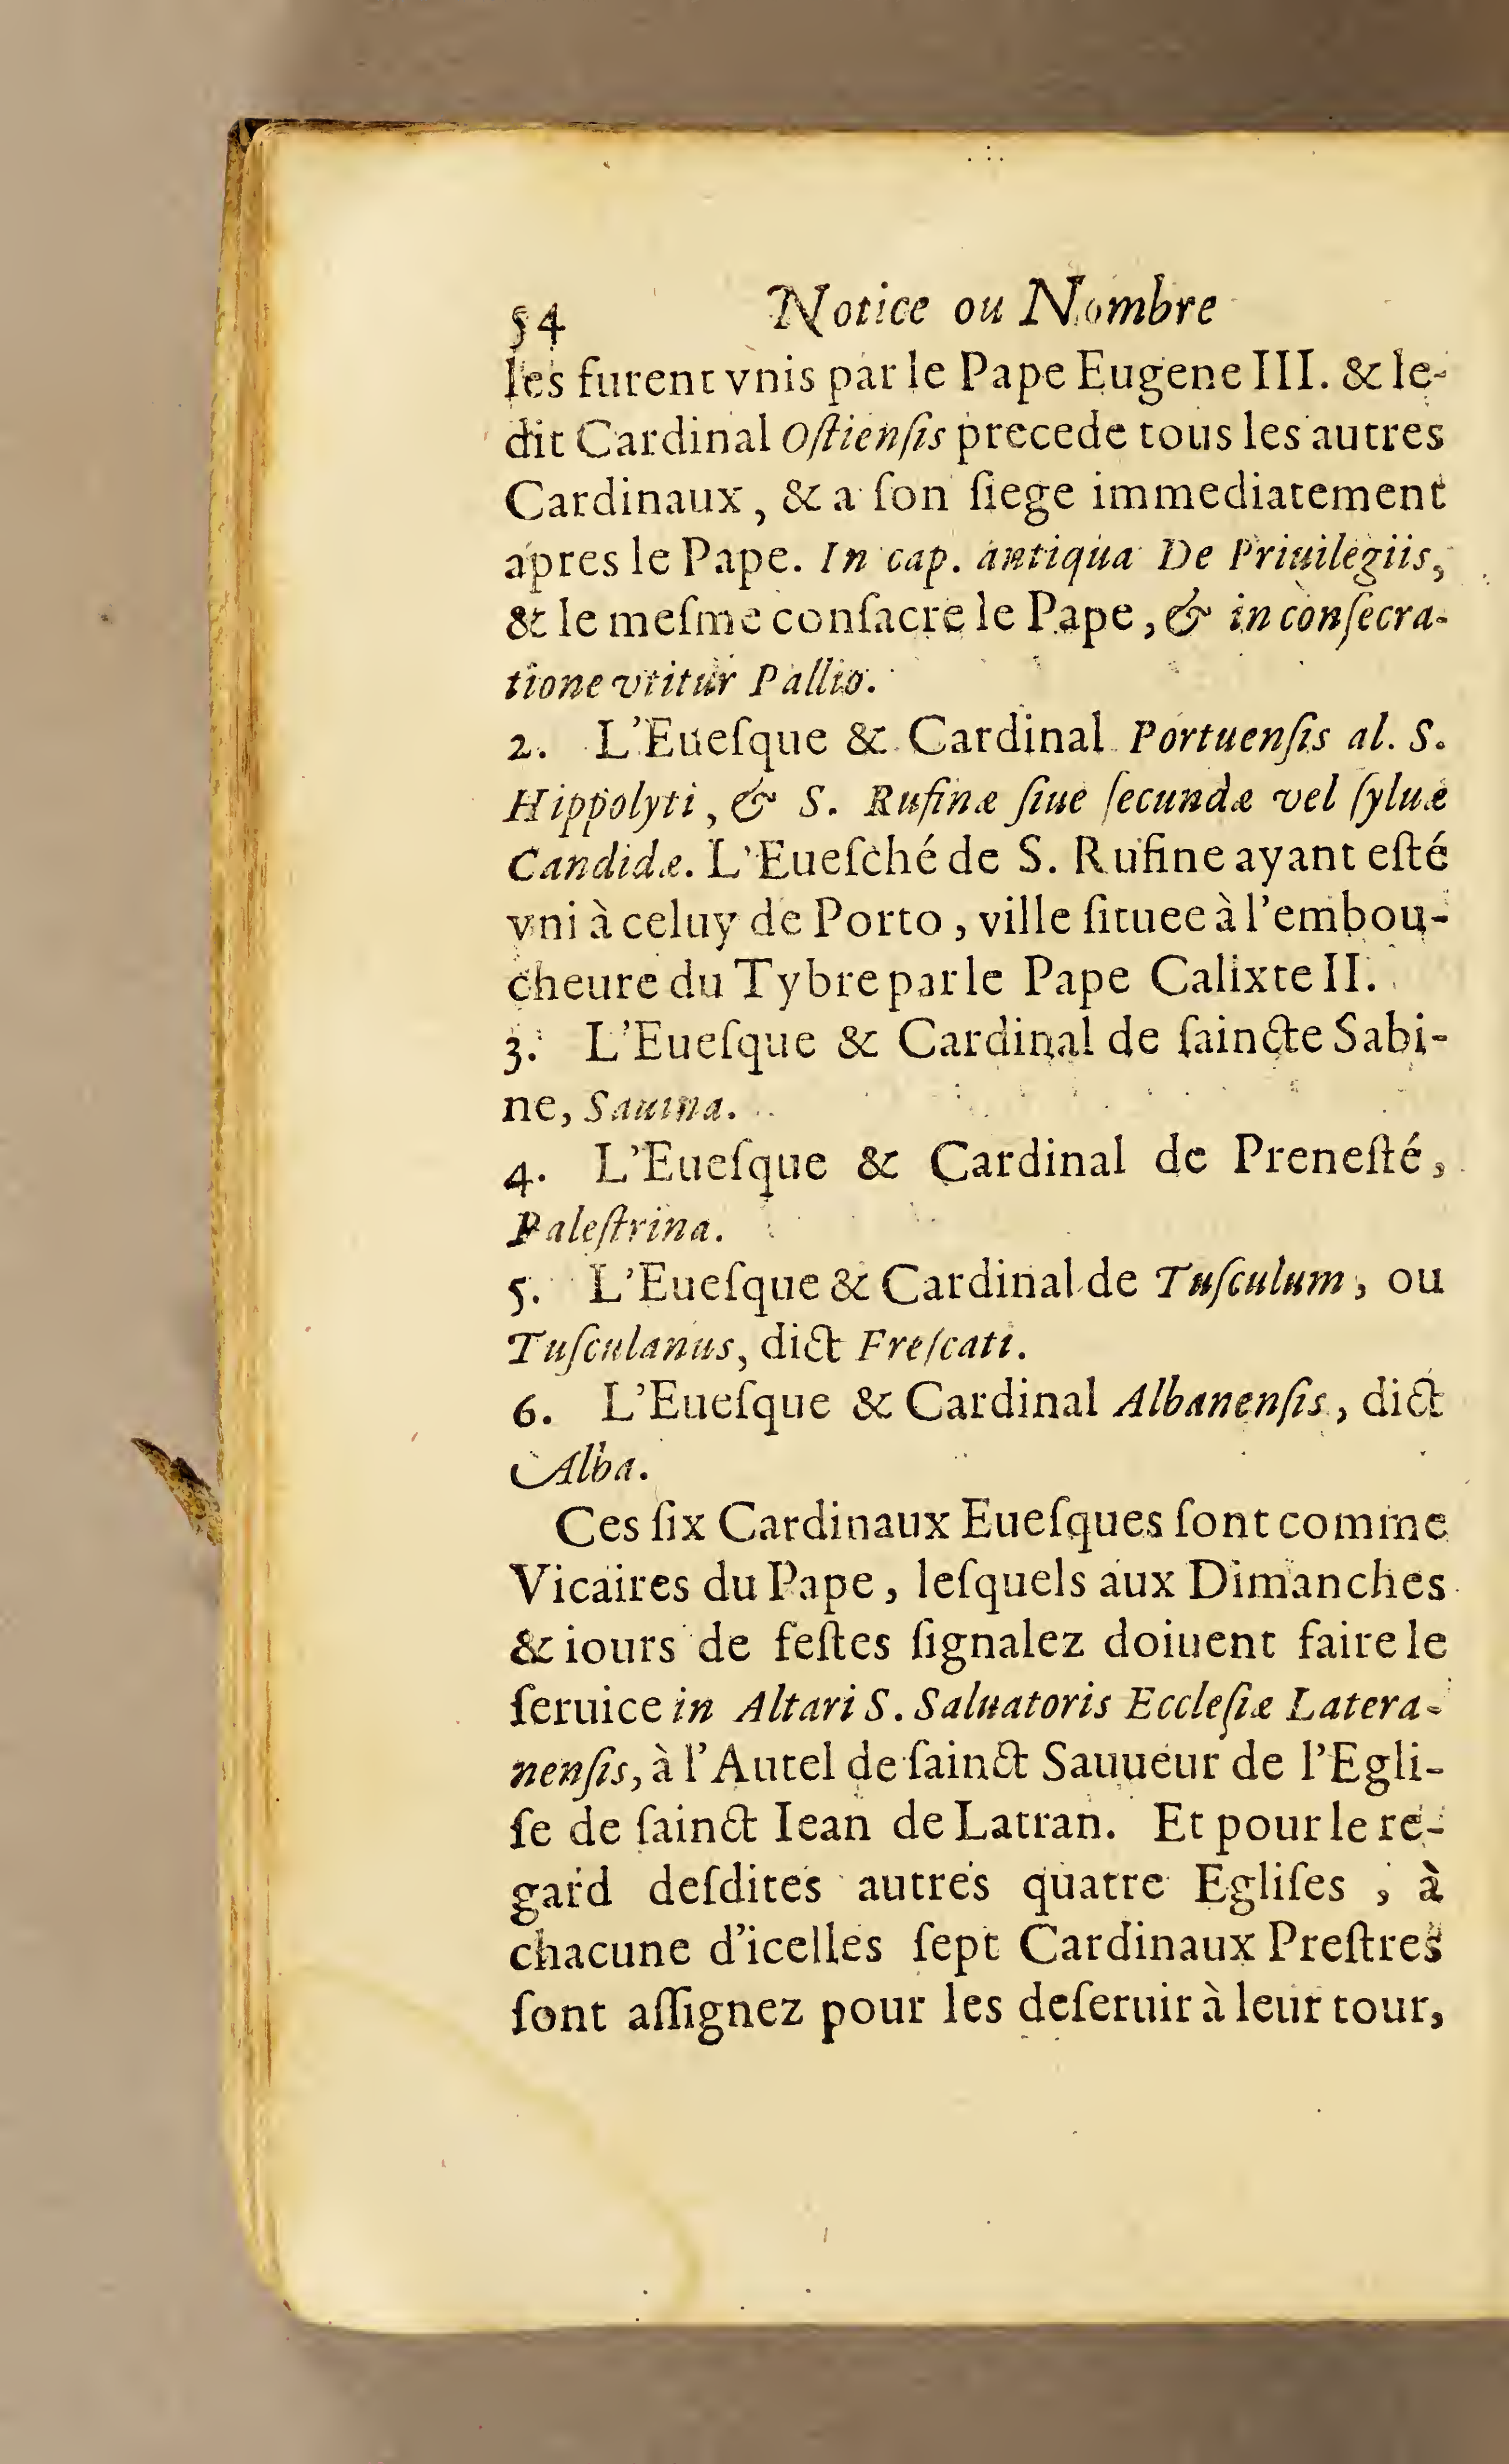 54 Notice ou Nombre
les furent vnis par le Pape Eugene III. & le-
dit Cardinal Oſtienſis precede tous les autres
Cardinaux, & a ſon ſiege immediatement
apres le Pape. In cap. antiqua De Priuilegiis,
& le meſme conſacre le Pape, & in conſecra-
tione vtitur Pallio.
2. L'Eueſque & Cardinal Portuenſis al. S.
Hippolyti, & S. Rufinæ ſiue ſecundæ vel ſyluæ
Candidæ. L'Eueſché de S. Rufine ayant eſté
vni à celuy de Porto, ville ſituee à l'embou-
cheure du Tybre par le Pape Calixte II.
3. L'Eueſque & Cardinal de ſaincte Sabi-
ne, Sauina.
4. L'Eueſque & Cardinal de Preneſté,
Paleſtrina.
5. L'Eueſque & Cardinal de Tuſculum, ou
Tuſculanus, dict Freſcati.
6. L'Eueſque & Cardinal Albanenſis, dict
Alba.
Ces ſix Cardinaux Eueſques ſont comme
Vicaires du Pape, leſquels aux Dimanches
& iours de feſtes ſignalez doiuent faire le
ſeruice in Altari S. Saluatoris Eccleſiæ Latera-
nenſis, à l'Autel de ſainct Sauueur de l'Egli-
ſe de ſainct Iean de Latran. Et pour le re-
gard deſdites autres quatre Egliſes, à
chacune d'icelles ſept Cardinaux Preſtres
ſont aſſignez pour les deſeruir à leur tour,